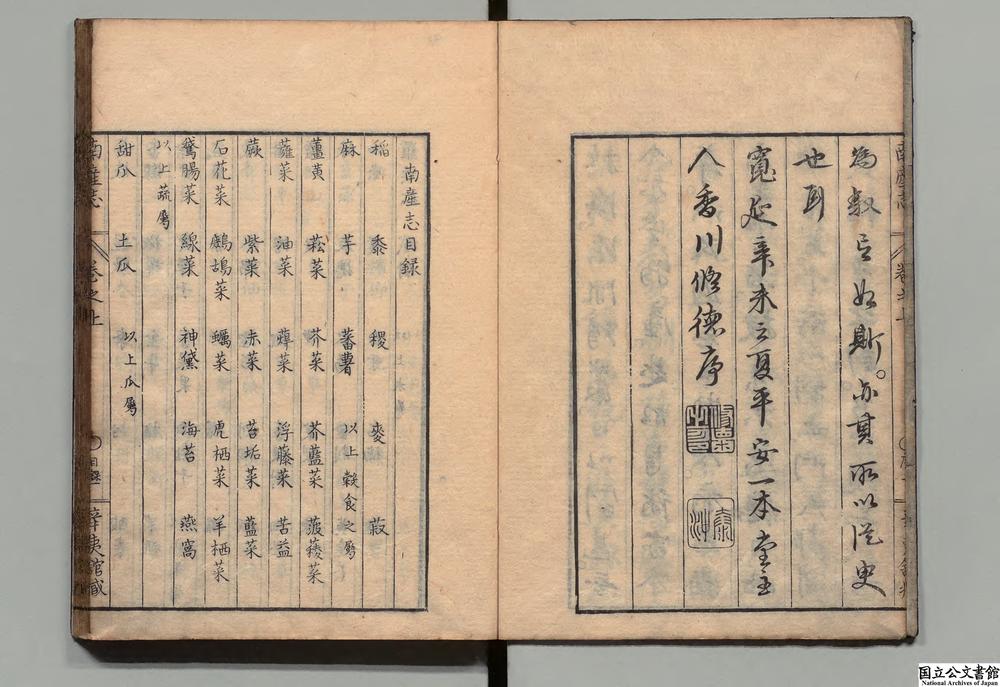 為叙之如斯。亦其所以從史
也耳
寛延辛未之夏平安一本堂主
人香川修德序
南產志目録
稻 黍 稷 麥 菽
麻 芋 蕃薯 以上穀食之屬
薑黄 菘菜 芥菜 芥藍菜 菠薐菜
蕹菜 油菜 蓴菜 浮藤菜 苦益
蕨 紫菜 赤菜 苔垢菜 藍菜
石花菜 鷓鴣菜 蠣菜 虎栖菜 羊栖菜
鵞腸菜 線菜 神黛 海苔 燕窩
以上蔬屬
甜瓜 土瓜 以上瓜屬
南產志 卷之上 目録 辛夷館藏
国立公文書館
National Archives of Japan